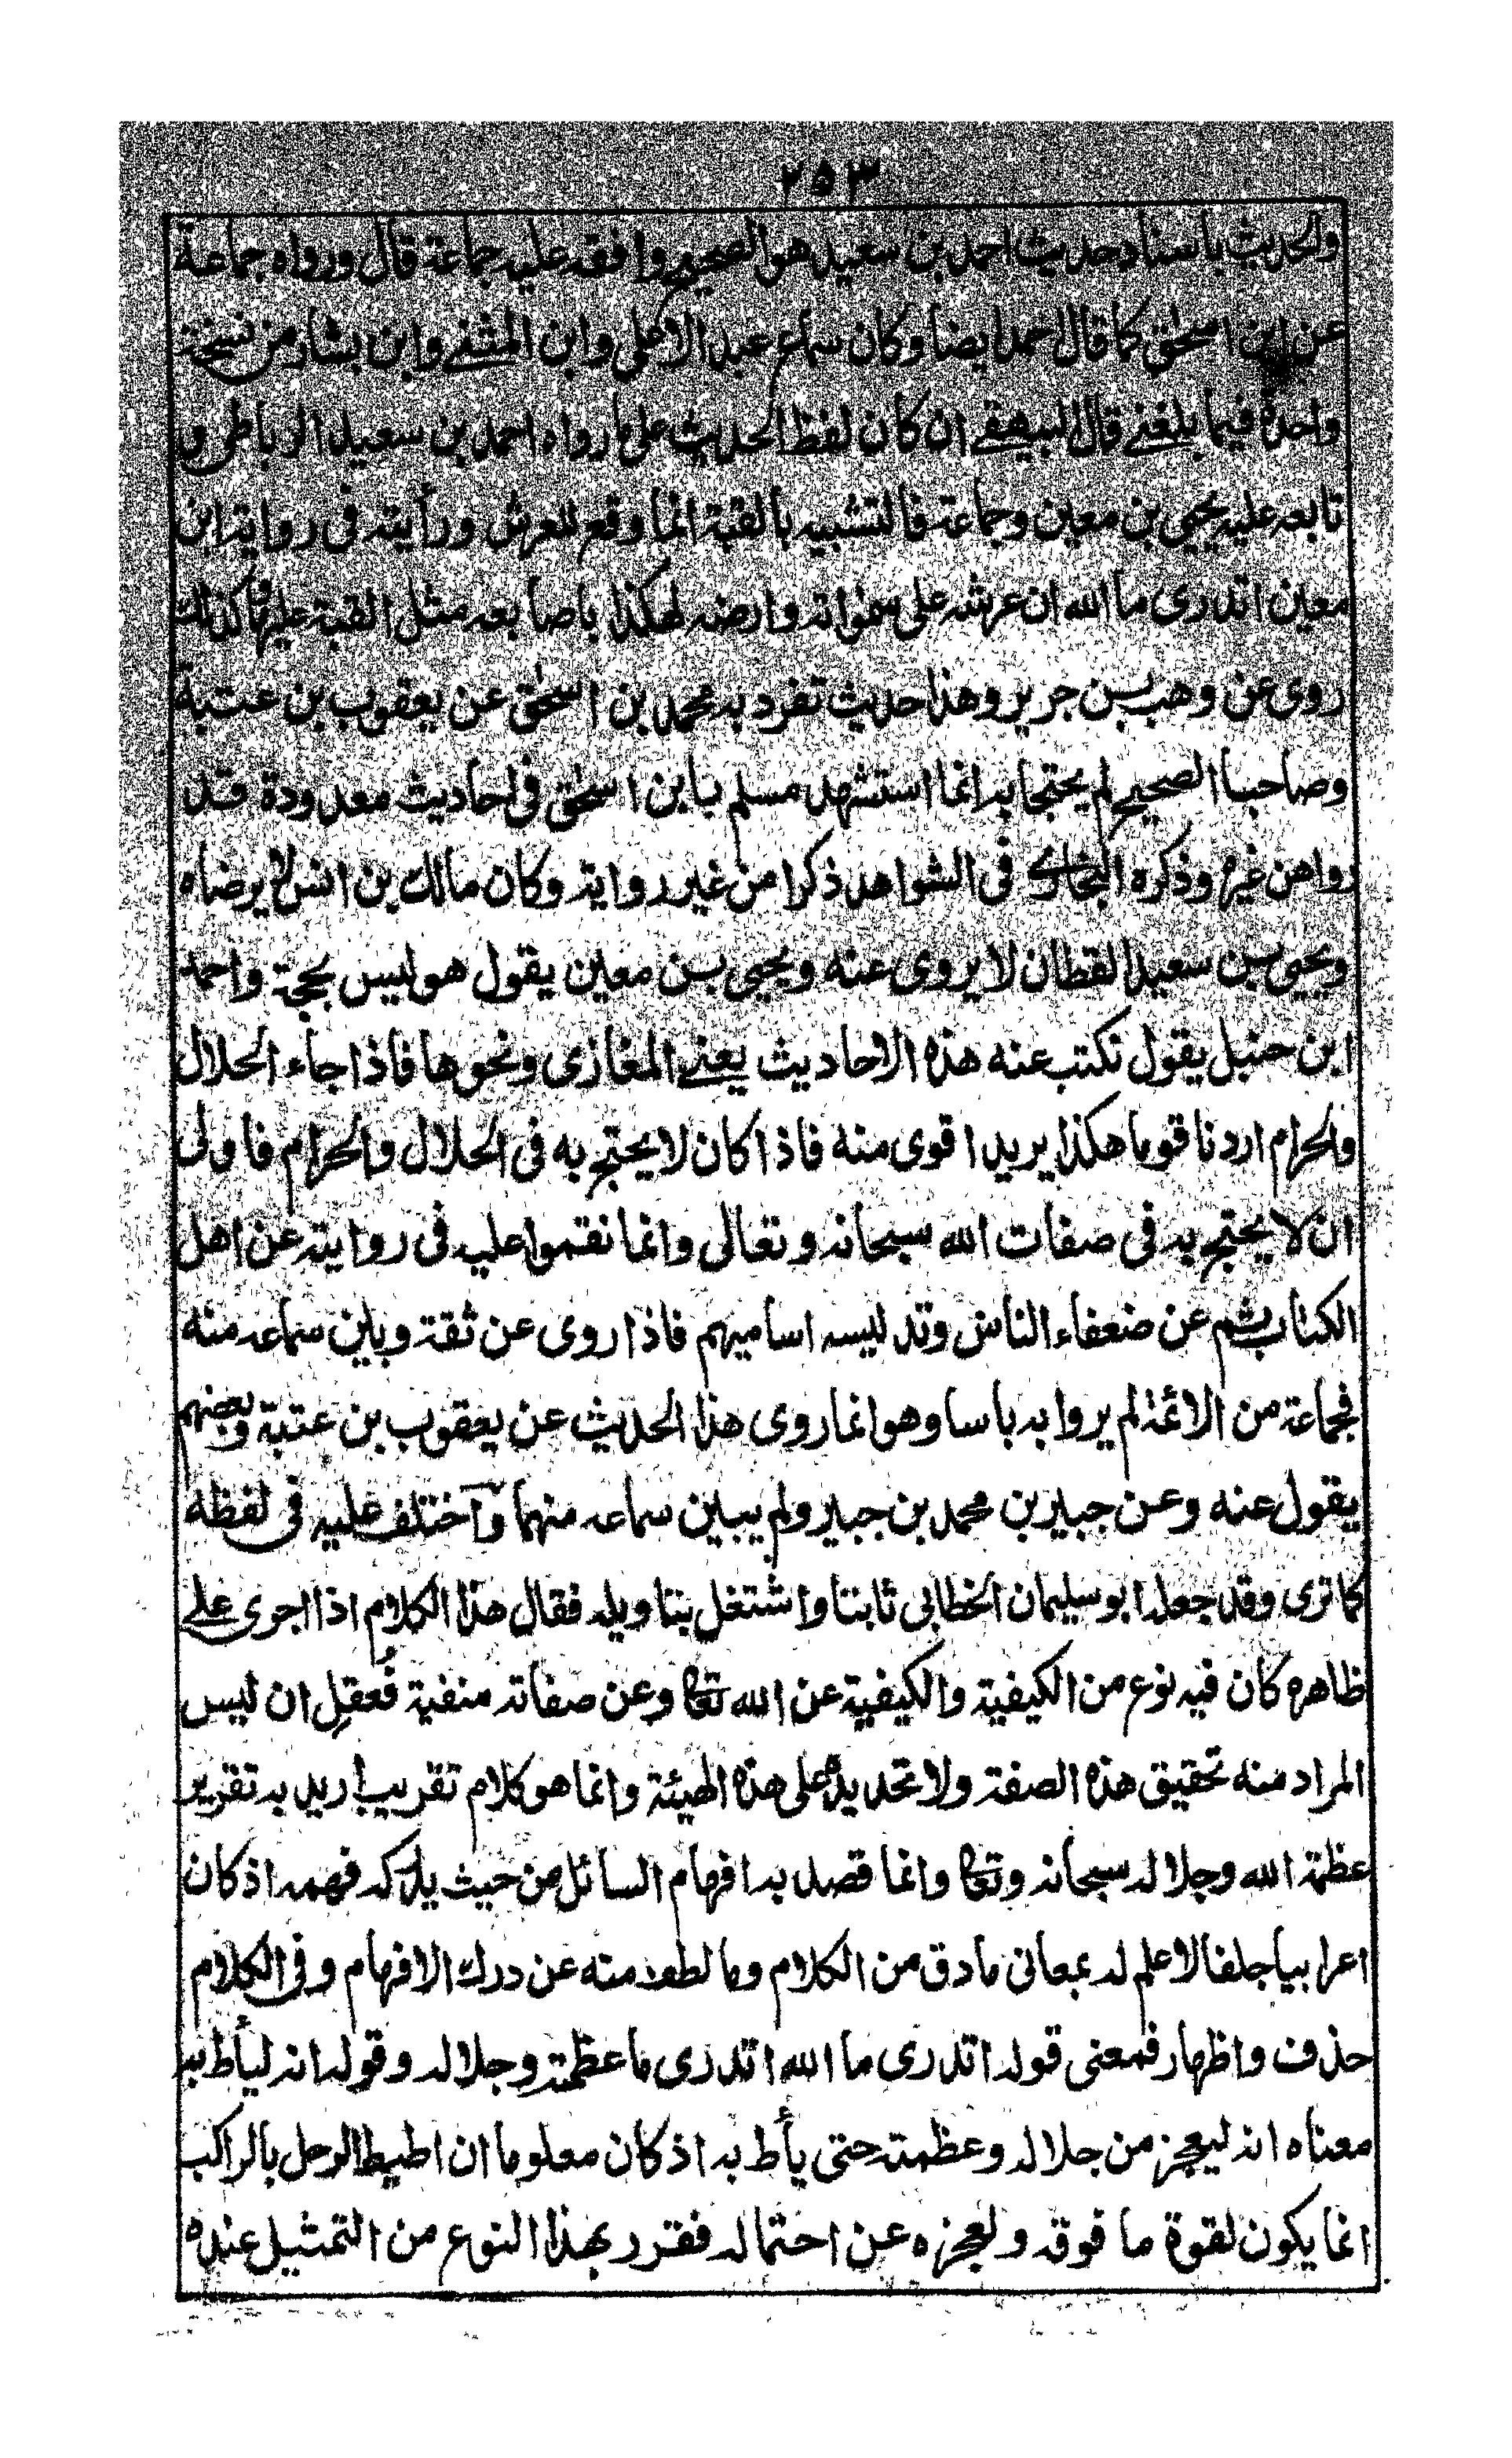 ٢٥٣
والحديث باسناد حديث احمد بن سعيد هو الصحيح وافقه عليه جماعة قال ورواه جماعة
عن ابن اسحٰق كما قال احمد ايضا وكان سماع عبد الاعلى وابن المثنے وابن بشار من نسخة
واحدة فيما بلغنے قال البيهقے ان كان لفظ الحديث على ما رواه احمد بن سعيد الرباطي و
تابعه عليه يحيى بن معين وجماعة فالتشبيه بالقبة انما وقع للعرش ورأيته فى رواية ابن
معين اتدرى ما الله ان عرشه على سمٰواته وارضه لهكذا باصابعه مثل القبة عليها وكذلك
روى عن وهب بن جرير وهذا حديث تفرد به محمد بن اسحٰق عن يعقوب بن عتبة
وصاحبا الصحيح لم يحتجا به انما استشهد مسلم بابن اسحٰق فى احاديث معدودة قد
رواهن غيره وذكره البخارى فى الشواهد ذكرا من غير رواية وكان مالك بن انس لا يرضاه
ويحيى بن سعيد القطان لا يروى عنه ويحيى بن معين يقول هو ليس بحجة واحمد
ابن حنبل يقول نكتب عنه هذه الاحاديث يعنے المغازى ونحوها فاذا جاء الحلال
والحرام اردنا قوما هكذا يريد اقوى منه فاذا كان لا يحتج به فى الحلال والحرام فاولى
ان لا يحتج به فى صفات الله سبحانه وتعالى وانما نقموا عليه فى روايته عن اهل
الكتاب ثم عن ضعفاء الناس وتدليسه اساميهم فاذا روى عن ثقة وبين سماعه منه
فجماعة من الائمة لم يروا به باسا وهو انما روى هذا الحديث عن يعقوب بن عتبة وبعضهم
يقول عنه وعن جبير بن محمد بن جبير ولم يبين سماعه منهما وآختلف عليه فى لفظه
كما ترى وقد جعله ابو سليمان الخطابى ثابتا واشتغل بتاويله فقال هذا الكلام اذا اجرى علے
ظاهره كان فيه نوع من الكيفية والكيفية عن الله تعالى وعن صفاته منفية فُعقِل ان ليس
المراد منه تحقيق هذه الصفة ولا تحديده على هذه الهيئة وانما هو كلام تقريب اريد به تقرير
عظمة الله وجلاله سبحانه وتعالى وانما قصد به افهام السائل من حيث يدركه فهمه اذ كان
اعرابيا جلفا لا علم له بمعانى ما دق من الكلام وما لطف منه عن درك الافهام وفى الكلام
حذف واظهار فمعنى قوله اتدرى ما الله اتدرى ما عظمة وجلاله وقوله انه ليأط به
معناه انه ليعجز من جلاله وعظمته حتى يأط به اذ كان معلوما ان اطيط الرحل بالراكب
انما يكون لقوة ما فوقه ولعجزه عن احتماله فقرر بهذا النوع من التمثيل عنده